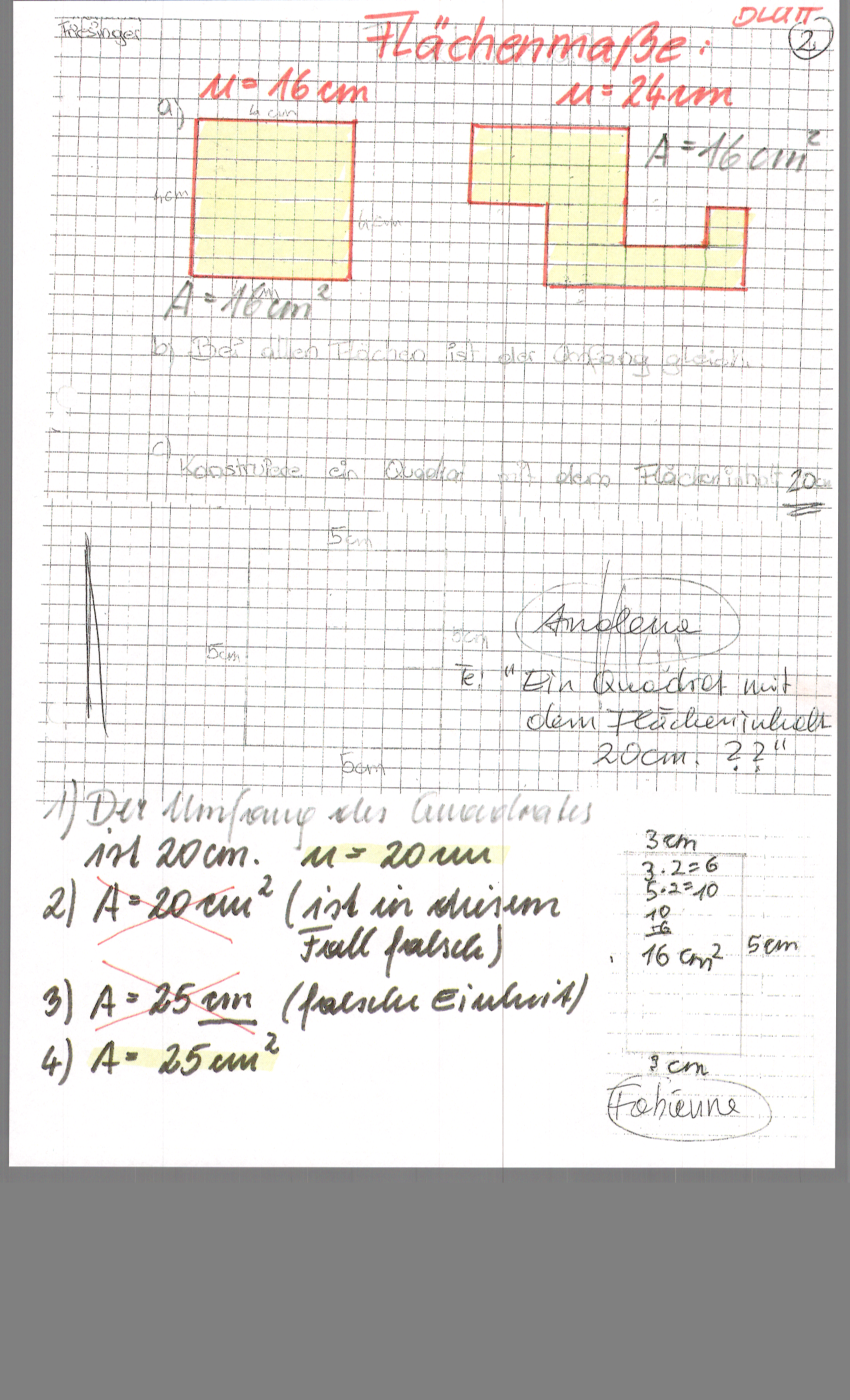 Friesinger
BLATT
2.
Flächenmaße:
u = 16 cm
u = 24 cm
a)
4 cm
A = 16 cm²
4cm
A = 16 cm²
b) Bei allen Flächen ist der Umfang gleich.
c)
Konstruiere ein Quadrat mit dem Flächeninhalt 20cm
5cm
5cm
5cm
5cm
Te: "Ein Quadrat mit
dem Flächeninhalt
20cm. ??"
1) Der Umfang des Quadrates
ist 20 cm. u = 20 cm
2) A = 20 cm² (ist in diesem
Fall falsch)
3) A = 25 cm (falsche Einheit)
4) A = 25 cm²
3 cm
3·2=6
5·2=10
10
16 cm²
5cm
3 cm
Fabienne